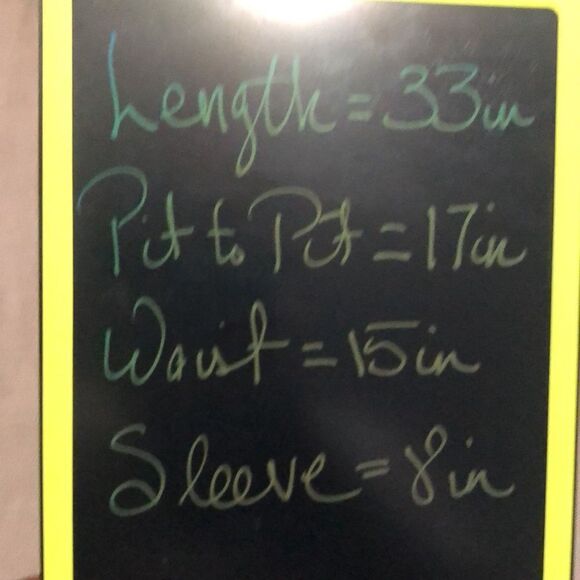 Length = 33in
Pit to Pit = 17in
Waist = 15in
Sleeve = 8in